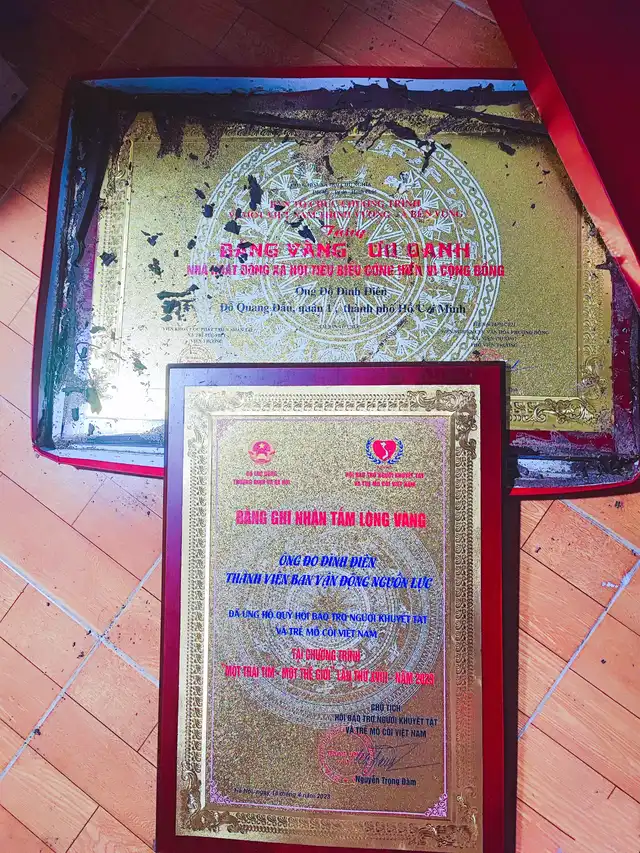 BAN TỔ CHỨC CHƯƠNG TRÌNH
VÌ MỘT VIỆT NAM THỊNH VƯỢNG VÀ BỀN VỮNG
Tặng
BẢNG VÀNG ƯU DANH
NHÀ HOẠT ĐỘNG XÃ HỘI TIÊU BIỂU CỐNG HIẾN VÌ CỘNG ĐỒNG
Ông Đỗ Đình Điền
Đỗ Quang Đẩu, quận 1, thành phố Hồ Chí Minh
VIỆN TRƯỞNG
BỘ LAO ĐỘNG
THƯƠNG BINH VÀ XÃ HỘI
HỘI BẢO TRỢ NGƯỜI KHUYẾT TẬT
VÀ TRẺ MỒ CÔI VIỆT NAM
BẢNG GHI NHẬN TẤM LÒNG VÀNG
ÔNG ĐỖ ĐÌNH ĐIỀN
THÀNH VIÊN BAN VẬN ĐỘNG NGUỒN LỰC
ĐÃ ỦNG HỘ QUỸ HỘI BẢO TRỢ NGƯỜI KHUYẾT TẬT
VÀ TRẺ MỒ CÔI VIỆT NAM
TẠI CHƯƠNG TRÌNH
"MỘT TRÁI TIM - MỘT THẾ GIỚI" LẦN THỨ XVIII - NĂM 2023
CHỦ TỊCH
HỘI BẢO TRỢ NGƯỜI KHUYẾT TẬT
VÀ TRẺ MỒ CÔI VIỆT NAM
Nguyễn Trọng Đàm
Hà Nội, ngày 18 tháng 4 năm 2023